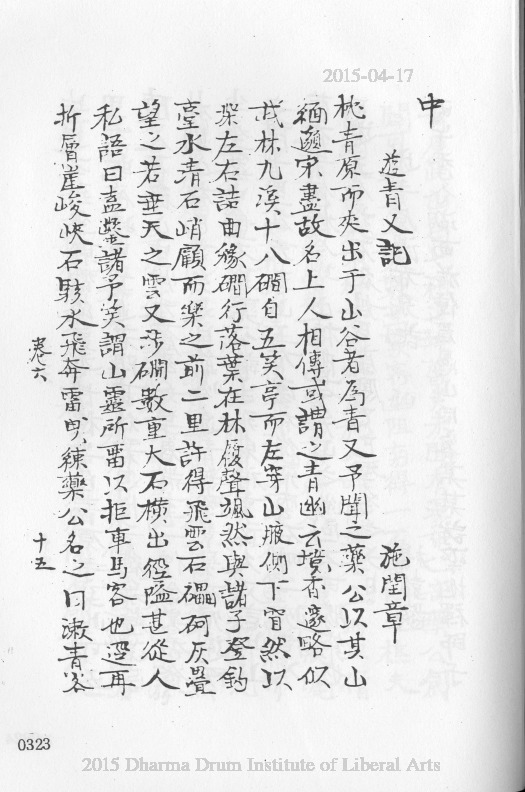 2015-04-17
中
遊青又記
施閏章
枕青原而夾出于山谷者為青又予聞之藥公以其山
緬邈宋盡故名上人相傳或謂之青幽云境杳邃略似
武林九溪十八礀自五笑亭而左穿山腋側下窅然以
深左右詰曲緣礀行落葉在林履聲颯然與諸子登釣
臺水清石峭顧而樂之前二里許得飛雲石礧砢灰疊
望之若垂天之雲又涉礀數重大石橫出徑隘甚從人
私語曰盍鑿諸予笑謂山靈所畱以拒車馬客也逕再
折層崖峻峽石駭水飛奔雷曳練藥公名之曰漱青谷
卷六
十五
0323
2015 Dharma Drum Institute of Liberal Arts